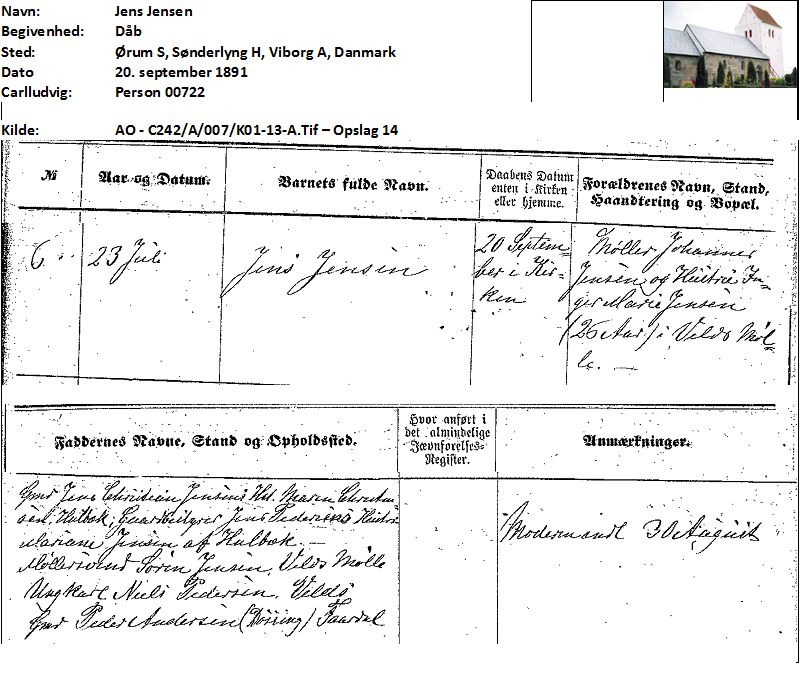 Navn: Jens Jensen
Begivenhed: Dåb
Sted: Ørum S, Sønderlyng H, Viborg A, Danmark
Dato 20. september 1891
Carlludvig: Person 00722
Kilde: AO - C242/A/007/K01-13-A.Tif – Opslag 14
№
Aar og Datum.
Barnets fulde Navn.
Daabens Datum
enten i Kirken
eller hjemme.
Forældrenes Navn, Stand,
Haandtering og Bopæl.
6
23 Juli
Jens Jensen
20 Septem-
ber i Kir-
ken
Møller Johannes
Jensen og Hustru In-
ger Marie Jensen
(26 Aar) i Velds Møl-
le. —
Faddernes Navne, Stand og Opholdssted.
Hvor anført i
det almindelige
Jævnførelses-
Register.
Anmærkninger.
Gmd Jens Christian Jensens Hst. Maren Christen-
sen, Hulbæk, Gaardbestyrer Jens Pedersens Hustru
Mariane Jensen af Hulbæk. —
Møllersvend Søren Jensen, Velds Mølle
Ungkarl Niels Pedersen, Velds
Gmd Peder Andersen (Rörring) Faardal
Moder 30 August